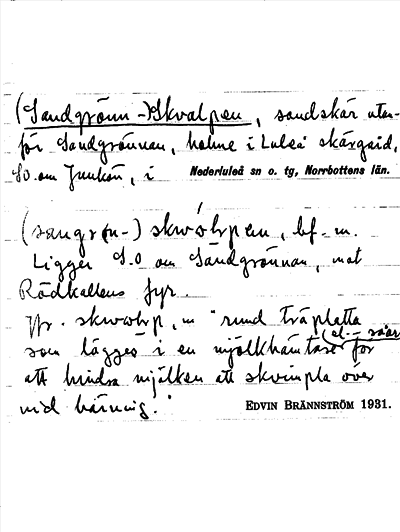 (Sandgrönn-)Skvalpen, sandskär utan-
för Sandgrönnan, holme i Luleå skärgård,
SO om Junkön, i Nederluleå sn o. tg, Norrbottens län.
(sangrön-) skwålpen, bf. m.
Ligger S.O om Sandgrönnan, mot
Rödkallens fyr.
Jfr. skwålp, m "rund träplatta
som lägges i en mjölkhämtare (el. -såar) för
att hindra mjölken att skvimpla över
vid bärning."
EDVIN BRÄNNSTRÖM 1931.